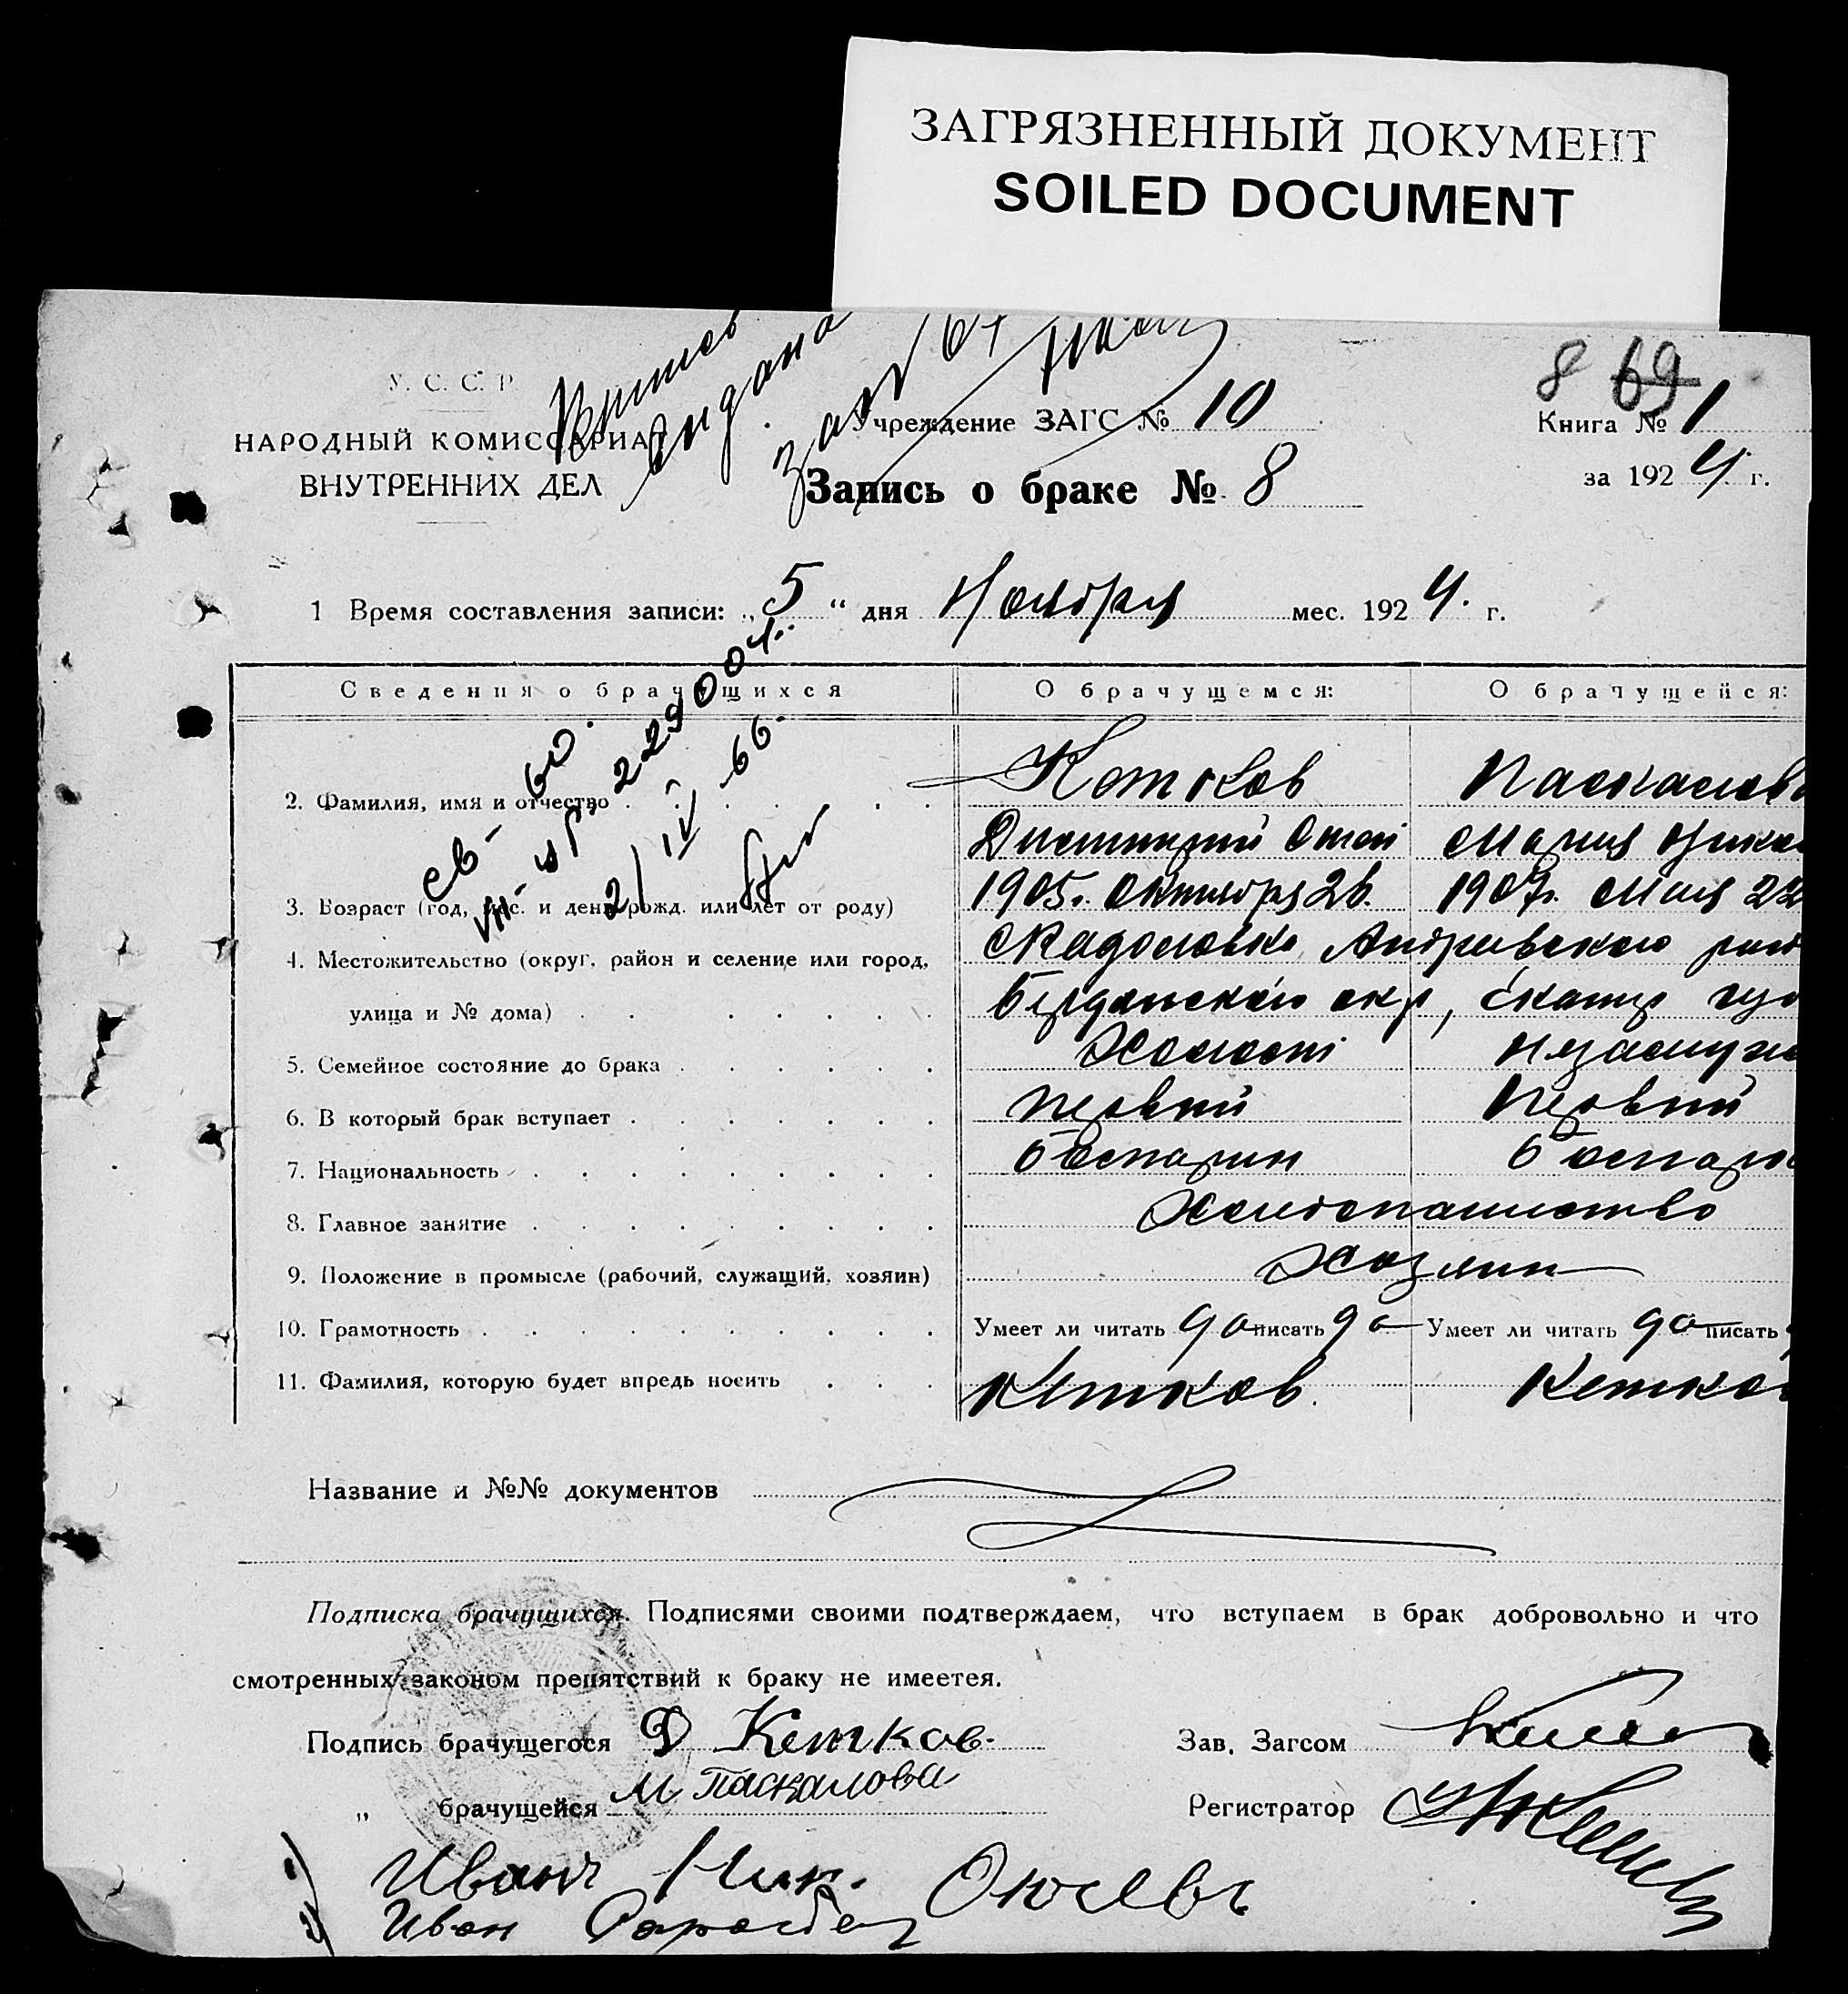 ЗАГРЯЗНЕННЫЙ ДОКУМЕНТ
SOILED DOCUMENT
8 69
У. С. С. Р.
НАРОДНЫЙ КОМИССАРИАТ
ВНУТРЕННИХ ДЕЛ
Учреждение ЗАГС № 10
Книга № 1
за 1924 г.
Запись о браке № 8
1 Время составления записи: „5“ дня Ноября мес. 1924. г.
Сведения о брачущихся О брачущемся: О брачущейся:
2. Фамилия, имя и отчество Кетков Паскалов
Дмитрий Мария
3. Возраст (год, мес. и день рожд. или лет от роду) 1905. Октября 26. 1907. Мая 22
4. Местожительство (округ, район и селение или город, Андриевского
улица и № дома) Бердянского окр,
5. Семейное состояние до брака Холост
6. В который брак вступает Первый Первый
7. Национальность болгарин болгар
8. Главное занятие Хлебопашество
9. Положение в промысле (рабочий, служащий, хозяин) Хозяин
10. Грамотность Умеет ли читать да писать да Умеет ли читать да писать
11. Фамилия, которую будет впредь носить Кетков. Кетко
Название и №№ документов
Подписка брачущихся. Подписями своими подтверждаем, что вступаем в брак добровольно и что
смотренных законом препятствий к браку не имеется.
Подпись брачущегося Д Кетков. Зав. Загсом
„ брачущейся М Паскалова Регистратор
Иванъ Ник.
Иван
св-во.
229004
2/IV-66.